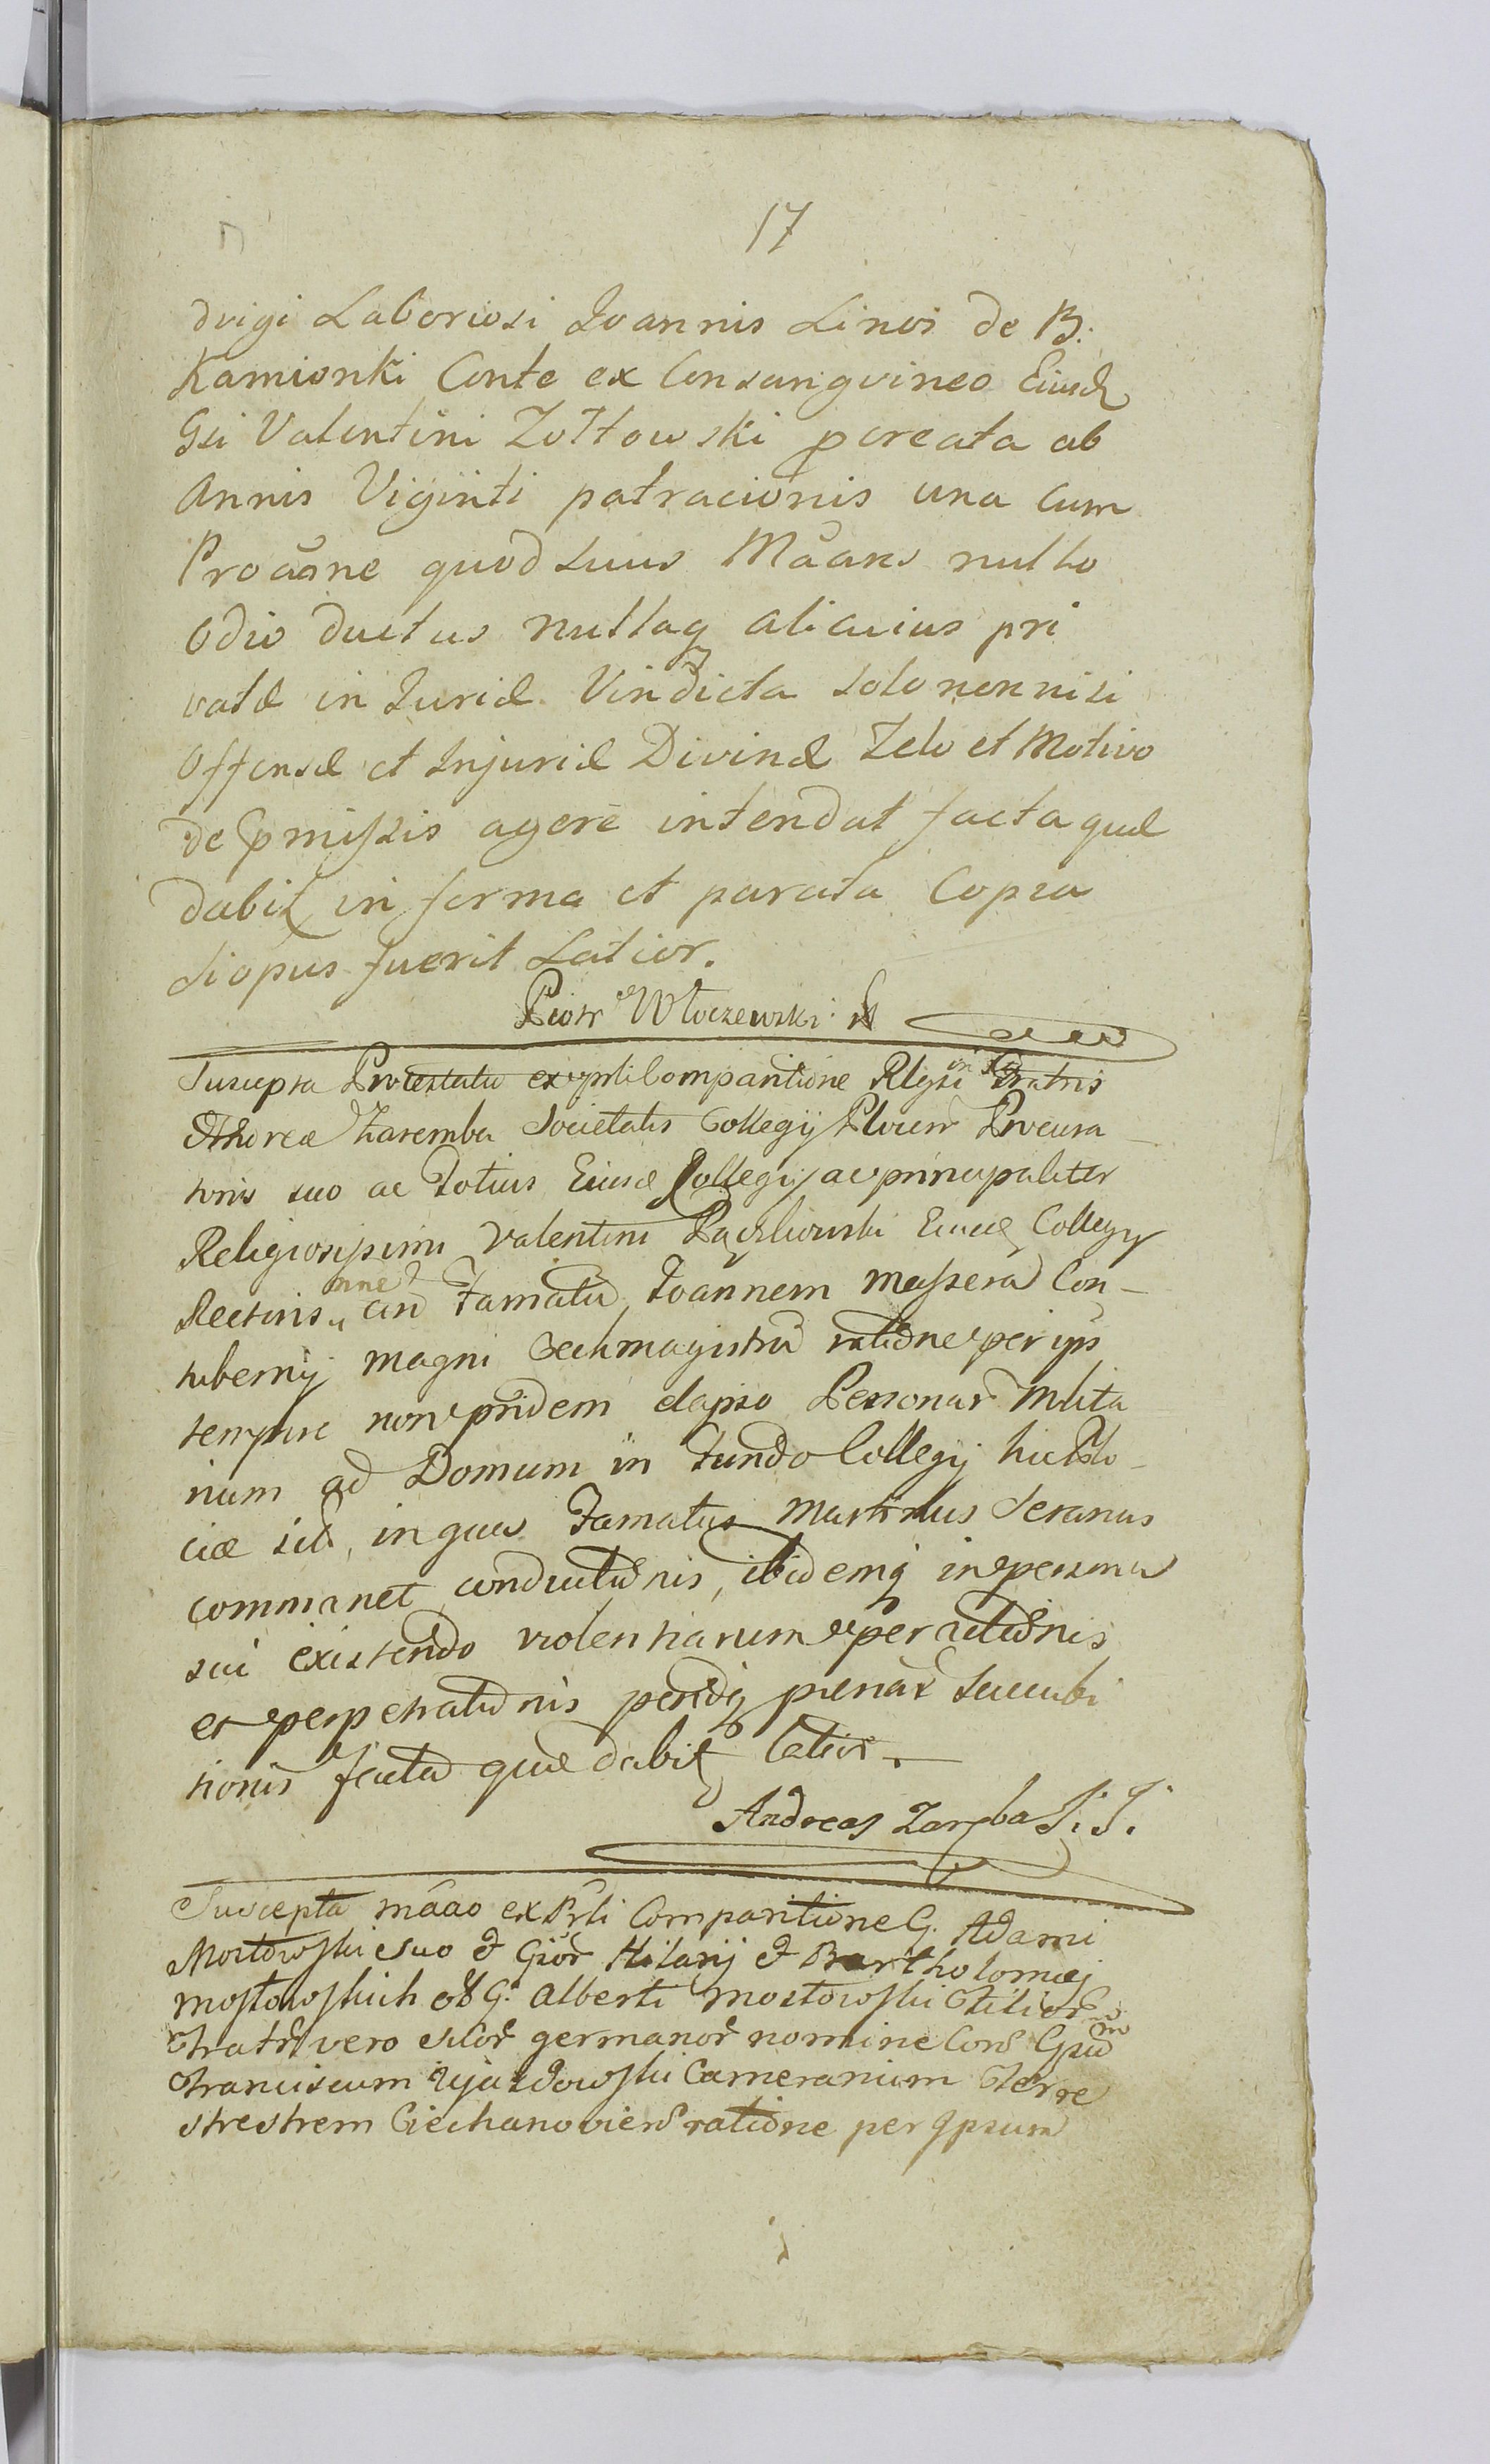 17
dvigi Laboriosi Joannis Linos de B.
Kamionki Conte ex Consangvineo Eiusd
Gsi Valentini Zołtowski pcreata ab
Annis Viginti patracionis una Cum
Procãone quod suus Mãans nullo
Odio ductus nullaq alicuius pri
vatæ in Juriæ Vindicta solo non nisi
Offensæ et Injuriæ Divinæ Zelo et Motivo
de pmissis agere intendat facta quæ
dabit in forma et parata Copia
si opus fuerit Latior.
Piotr Włoczewski
Suscepta Protestatio ex pnti Comparitione Rlgsi Fratris
Andreæ Zaremba Societatis Collegij Plocen Procura
toris suo ac Totius Eiusd Collegij ac principaliter
Religiosissimi Valentini Eiusd Collegij
Rectoris nne con Famatũ Joannem Con-
tubernij Magni Cechmagistrũ ratione per ips
tempore non pridem elapso Personar Milita
rium ad Domum in Fundo Collegij hic Plo-
ciæ sitũ, in qua Famatus Martinus Seranus
commanet conductionis, ibidemq in persona
sui existendo violentiarum perpetrationis
et perpetrationis pendq penar Succubi
tionis facta quæ dabit latior.
Andreas Zaręba S. J.
Suscepta mãao ex Pñti Comparitione G. Adami
Mostowski suo & Gsor Hilarij & Bartholomæj
Mostowskich olg G. Alberti Mostowski Filior
Fratr vero suor germanor nomine Con Gsum
Franciscum Ujazdowski Camerarium Terre
strestrem Ciechanoviens ratione per Ipsum